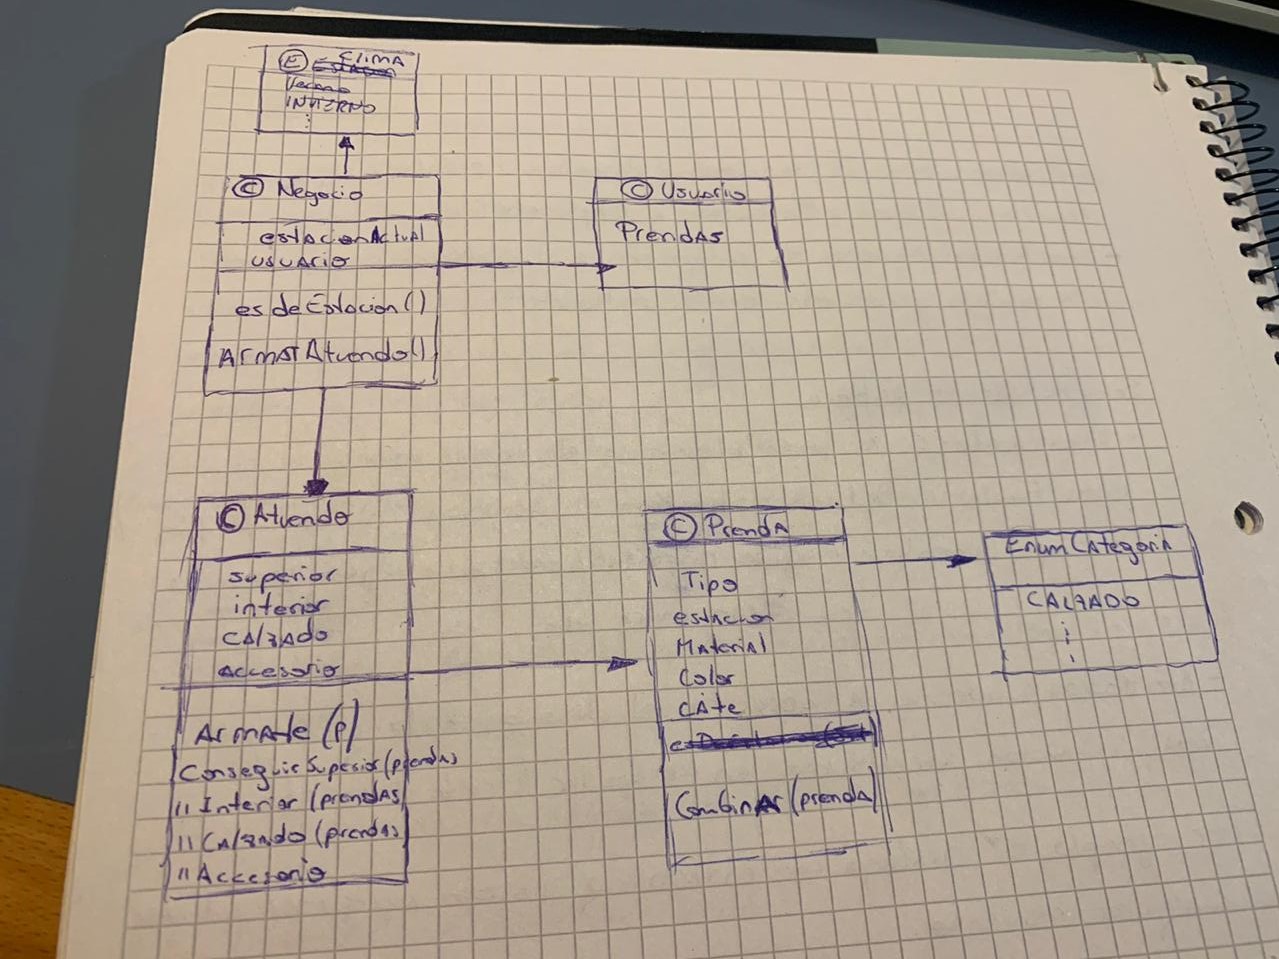 E Clima
Verano
INVIERNO
C Negocio
estacionActual
usuario
es de Estacion()
ArmarAtuendo()
C Usuario
PrendAS
C Atuendo
superior
inferior
CAlzado
Accesorio
ArmAte (p)
ConseguirSuperior(prendas)
" Inferior (prendas
" CAlzado (prendas)
" Accesorio
C PrendA
Tipo
estacion
MAterial
Color
CAte
CombinAr (prendA)
Enum CAtegoriA
CALZADO